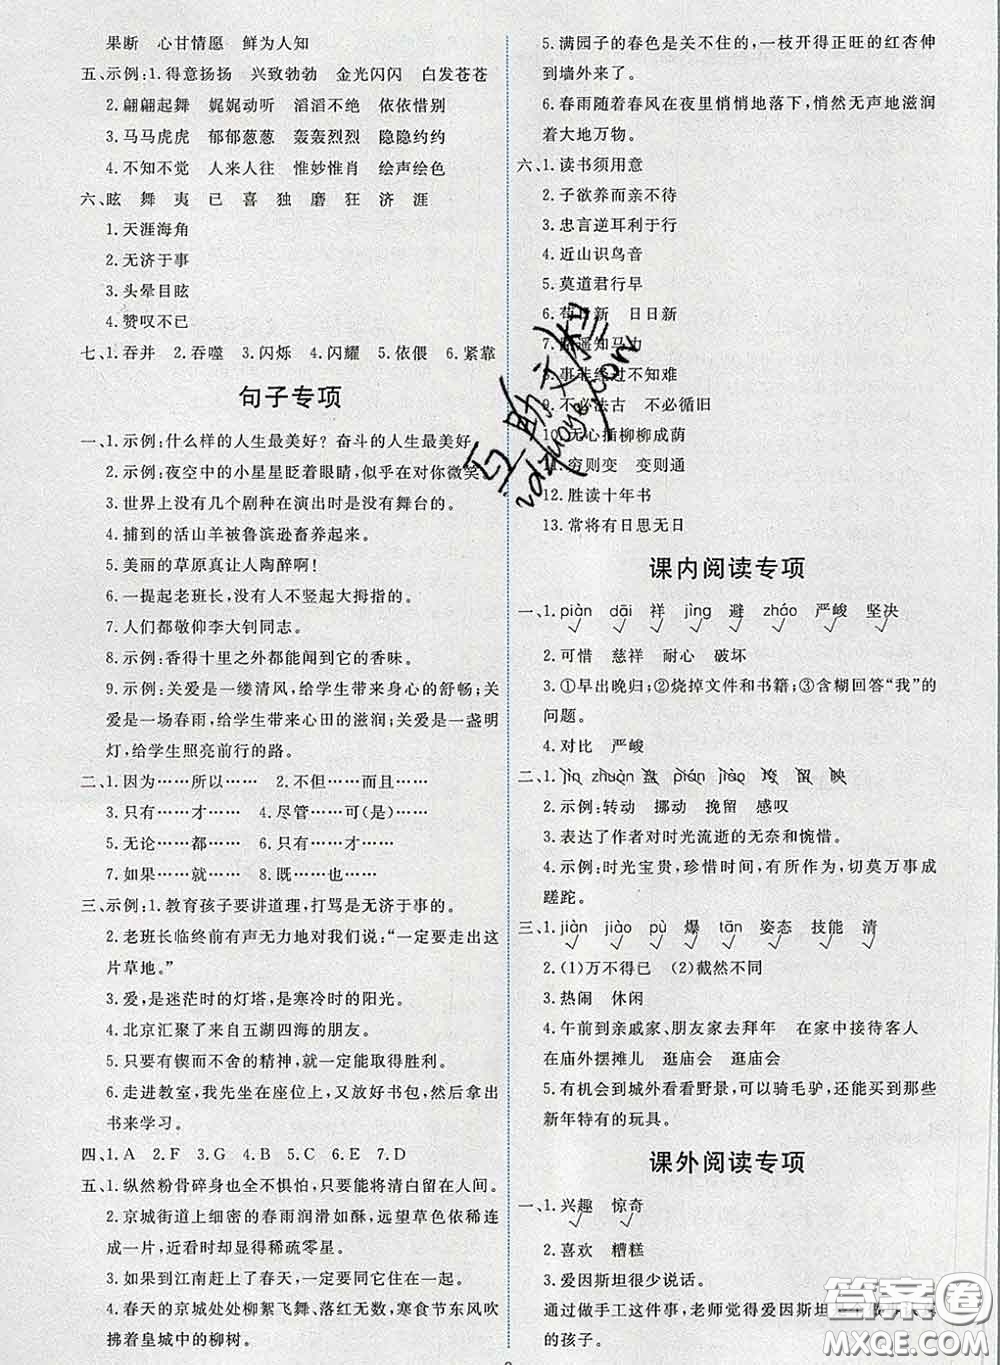 果断 心甘情愿 鲜为人知
五、示例:1.得意扬扬 兴致勃勃 金光闪闪 白发苍苍
2.翩翩起舞 娓娓动听 滔滔不绝 依依惜别
3.马马虎虎 郁郁葱葱 轰轰烈烈 隐隐约约
4.不知不觉 人来人往 惟妙惟肖 绘声绘色
六、眩 舞 夷 已 喜 独 磨 狂 济 涯
1.天涯海角
2.无济于事
3.头晕目眩
4.赞叹不已
七、1.吞并 2.吞噬 3.闪烁 4.闪耀 5.依偎 6.紧靠
句子专项
一、1.示例:什么样的人生最美好？奋斗的人生最美好。
2.示例:夜空中的小星星眨着眼睛,似乎在对你微笑。
3.世界上没有几个剧种在演出时是没有舞台的。
4.捕到的活山羊被鲁滨逊畜养起来。
5.美丽的草原真让人陶醉啊！
6.一提起老班长,没有人不竖起大拇指的。
7.人们都敬仰李大钊同志。
8.示例:香得十里之外都能闻到它的香味。
9.示例:关爱是一缕清风,给学生带来身心的舒畅;关
爱是一场春雨,给学生带来心田的滋润;关爱是一盏明
灯,给学生照亮前行的路。
二、1.因为……所以…… 2.不但……而且……
3.只有……才…… 4.尽管……可(是)……
5.无论……都…… 6.只有……才……
7.如果……就…… 8.既……也……
三、示例:1.教育孩子要讲道理,打骂是无济于事的。
2.老班长临终前有声无力地对我们说:“一定要走出这
片草地。”
3.爱,是迷茫时的灯塔,是寒冷时的阳光。
4.北京汇聚了来自五湖四海的朋友。
5.只要有锲而不舍的精神,就一定能取得胜利。
6.走进教室,坐在座位上,又放好书包,然后拿起
书来学习。
四、1.A 2.F 3.G 4.B 5.C 6.E 7.D
五、1.纵然粉骨碎身也全不惧怕,只要能把清白留在人间。
2.京城街道上细密的春雨润滑如酥,远望草色依稀连
成一片,近看时却显得稀疏零星。
3.如果到江南赶上了春天,一定要同春住在一起。
4.春天的京城处处柳絮飞舞、落红无数,寒食节东风吹
拂着皇城中的柳树。
5.满园子的春色是关不住的,一枝开得正旺的红杏伸
到墙外来了。
6.春雨随着春风在夜里悄悄地落下,悄然无声地滋润
着大地万物。
六、1.读书须用意
2.子欲养而亲不待
3.忠言逆耳利于行
4.近山识鸟音
5.莫道君行早
6.苟日新 日日新
7.路遥知马力
8.事非经过不知难
9.不必法古 不必循旧
10.无心插柳柳成荫
11.穷则变 变则通
12.胜读十年书
13.常将有日思无日
课内阅读专项
一、1.piàn dāi 祥 jìng 避 zháo 严峻 坚决
2.可惜 慈祥 耐心 破坏
3.①早出晚归;②烧掉文件和书籍;③含糊回答“我”的
问题。
4.对比 严峻
二、1.jìn zhuàn 盘 pián jiào 垮 留 映
2.示例:转动 挪动 挽留 感叹
3.表达了作者对时光流逝的无奈和惋惜。
4.示例:时光宝贵,珍惜时间,有所作为,切莫万事成
蹉跎。
三、1.jiàn jiào pù 爆 tān 姿态 技能 清
2.(1)万不得已 (2)截然不同
3.热闹 休闲
4.午前到亲戚家、朋友家去拜年 在家中接待客人
在庙外摆摊儿 逛庙会 逛庙会
5.有机会到城外看看野景,可以骑毛驴,还能买到那些
新年特有的玩具。
课外阅读专项
一、1.兴趣 惊奇
2.喜欢 糟糕
3.爱因斯坦很少说话。
通过做手工这件事,老师觉得爱因斯坦
的孩子。
互助文栏
答案圈
MXQE.COM